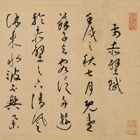 前赤壁賦
壬戌之秋七月既望
蘇子與客泛舟遊
於赤壁之下清風
徐來水波不興